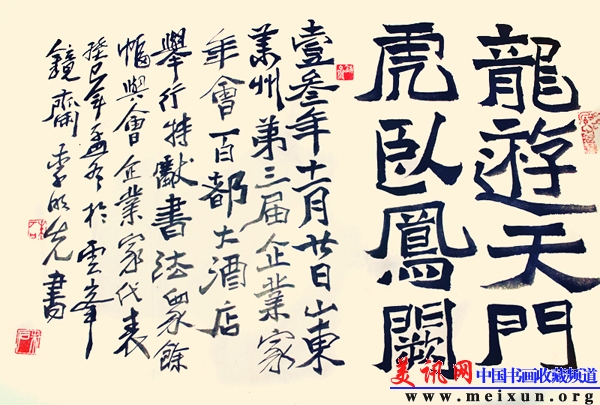 龍遊天門
虎臥鳳闕
壹叁年十一月廿日山東
莱州第三届企業家
年會百都大酒店
舉行特獻書法眾餘
幅與會企業家代表
癸巳年孟冬於雲峯
鏡齋李明先書
美讯网 中国书画收藏频道
www.meixun.org